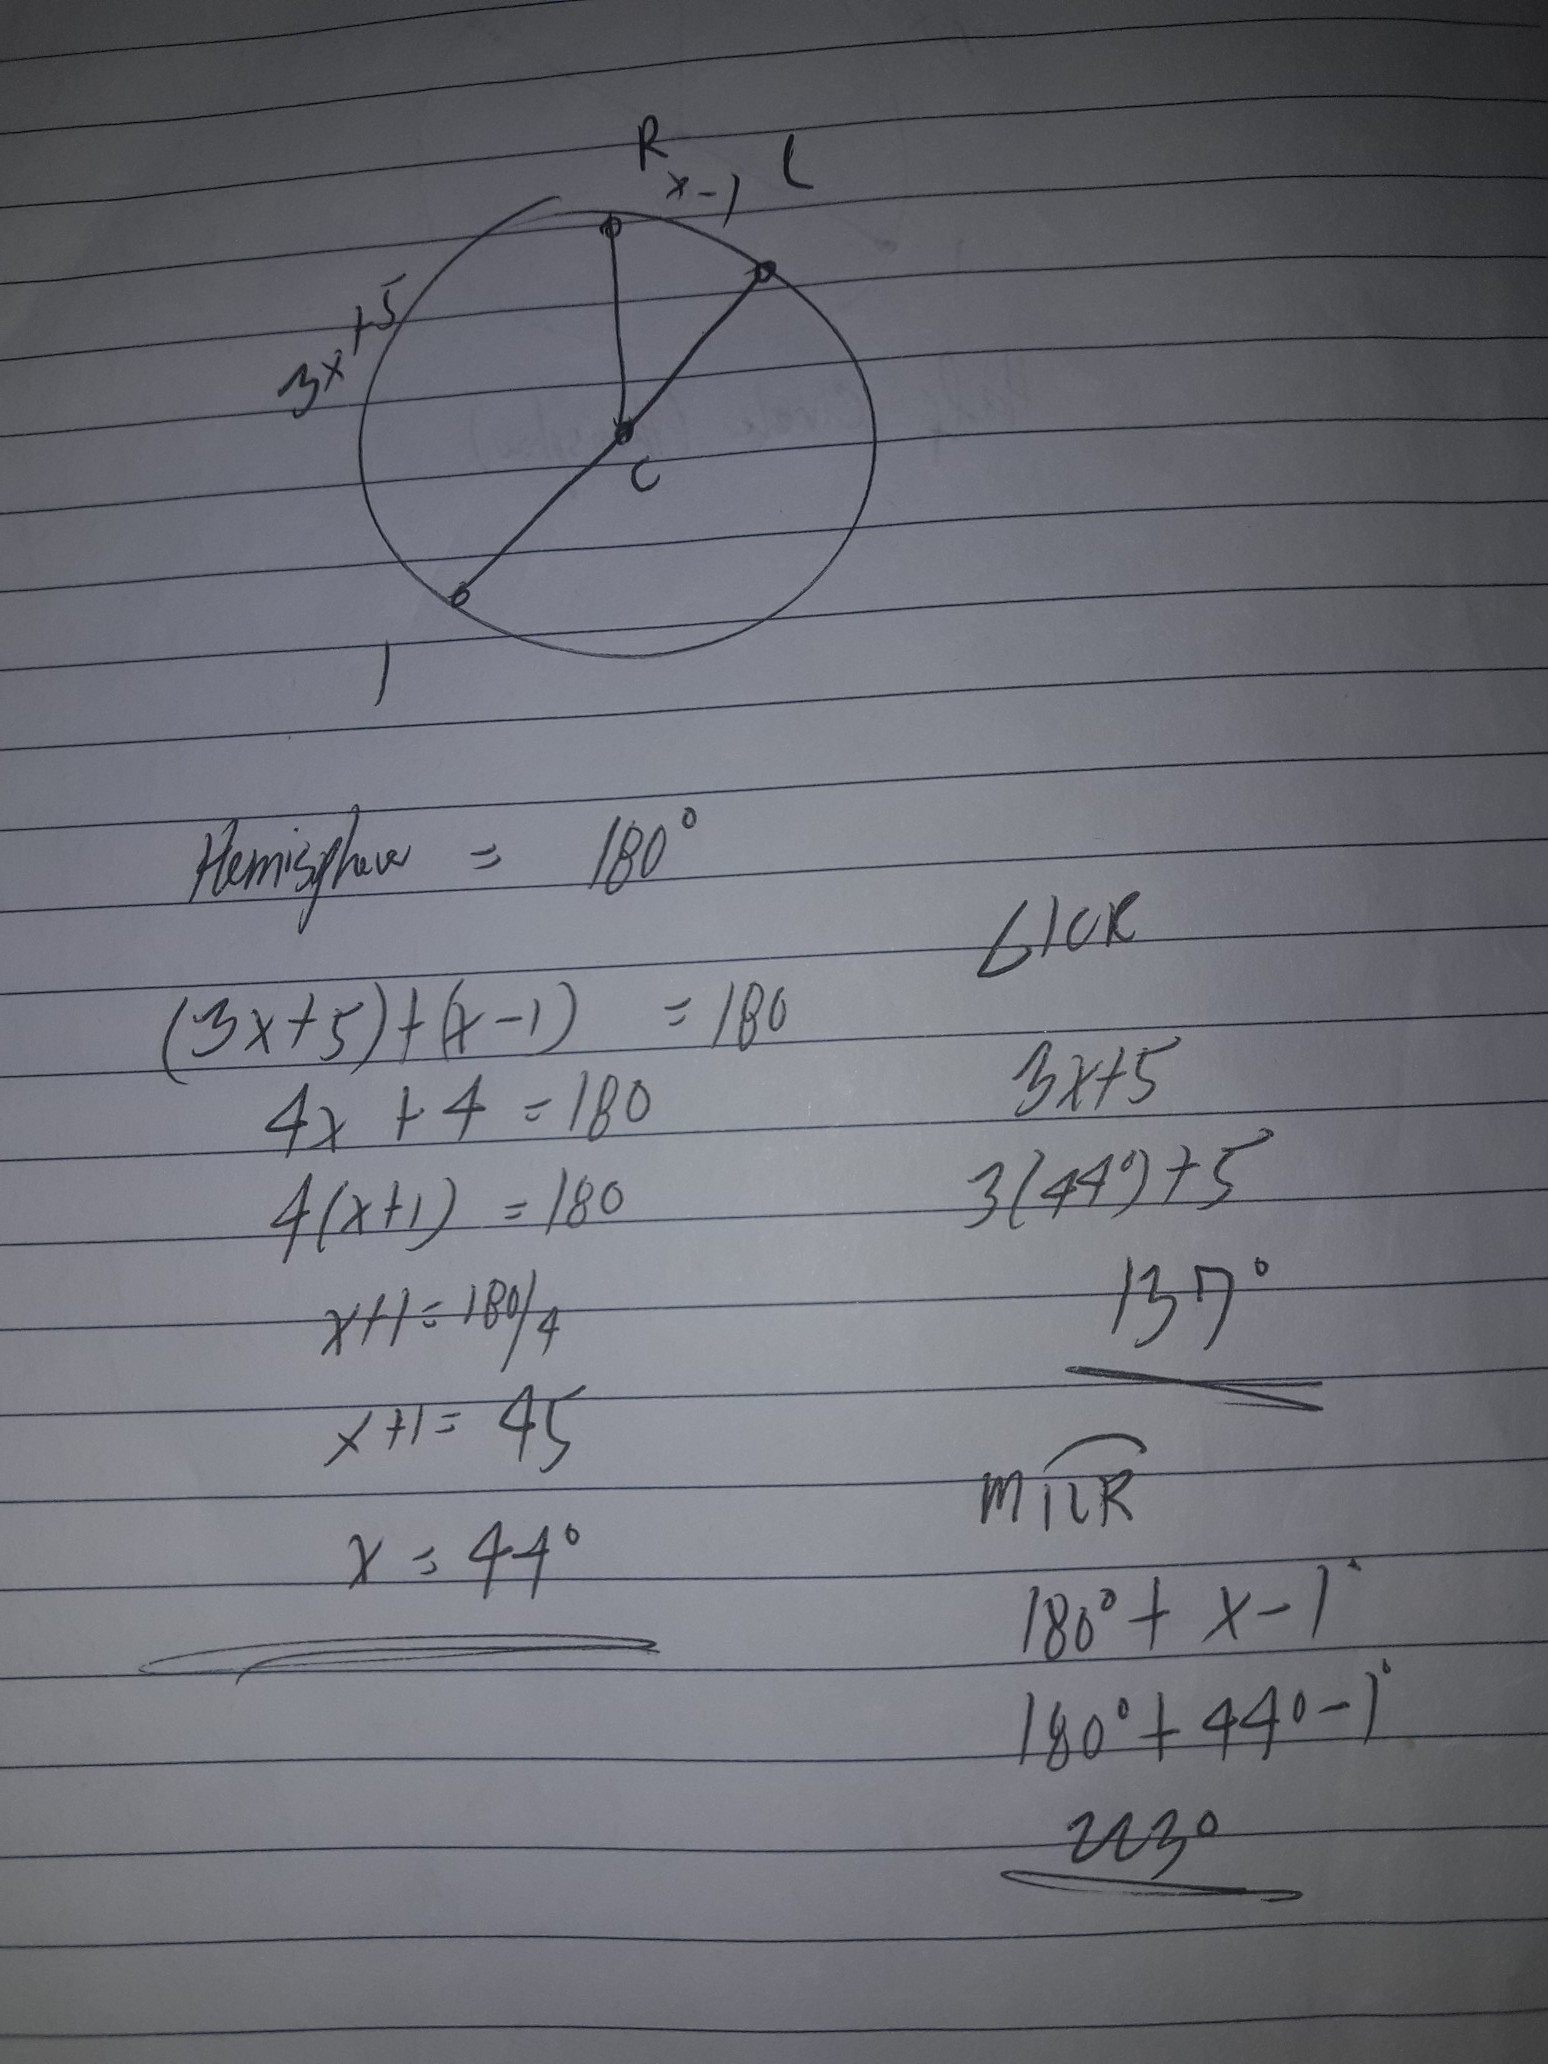 R
x-1
L
3x+5
C
1
Hemisphere = 180°
(3x+5)+(x-1) = 180
4x + 4 = 180
4(x+1) = 180
x+1 = 180/4
x+1 = 45
x = 44°
∠ICR
3x+5
3(44°)+5
137°
m ILR
180° + x-1°
180° + 44°-1°
223°